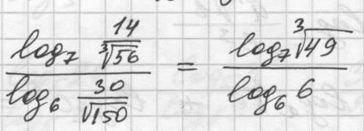 \frac{\log_7 \frac{14}{\sqrt[3]{56}}}{\log_6 \frac{30}{\sqrt{150}}} = \frac{\log_7 \sqrt[3]{49}}{\log_6 6}